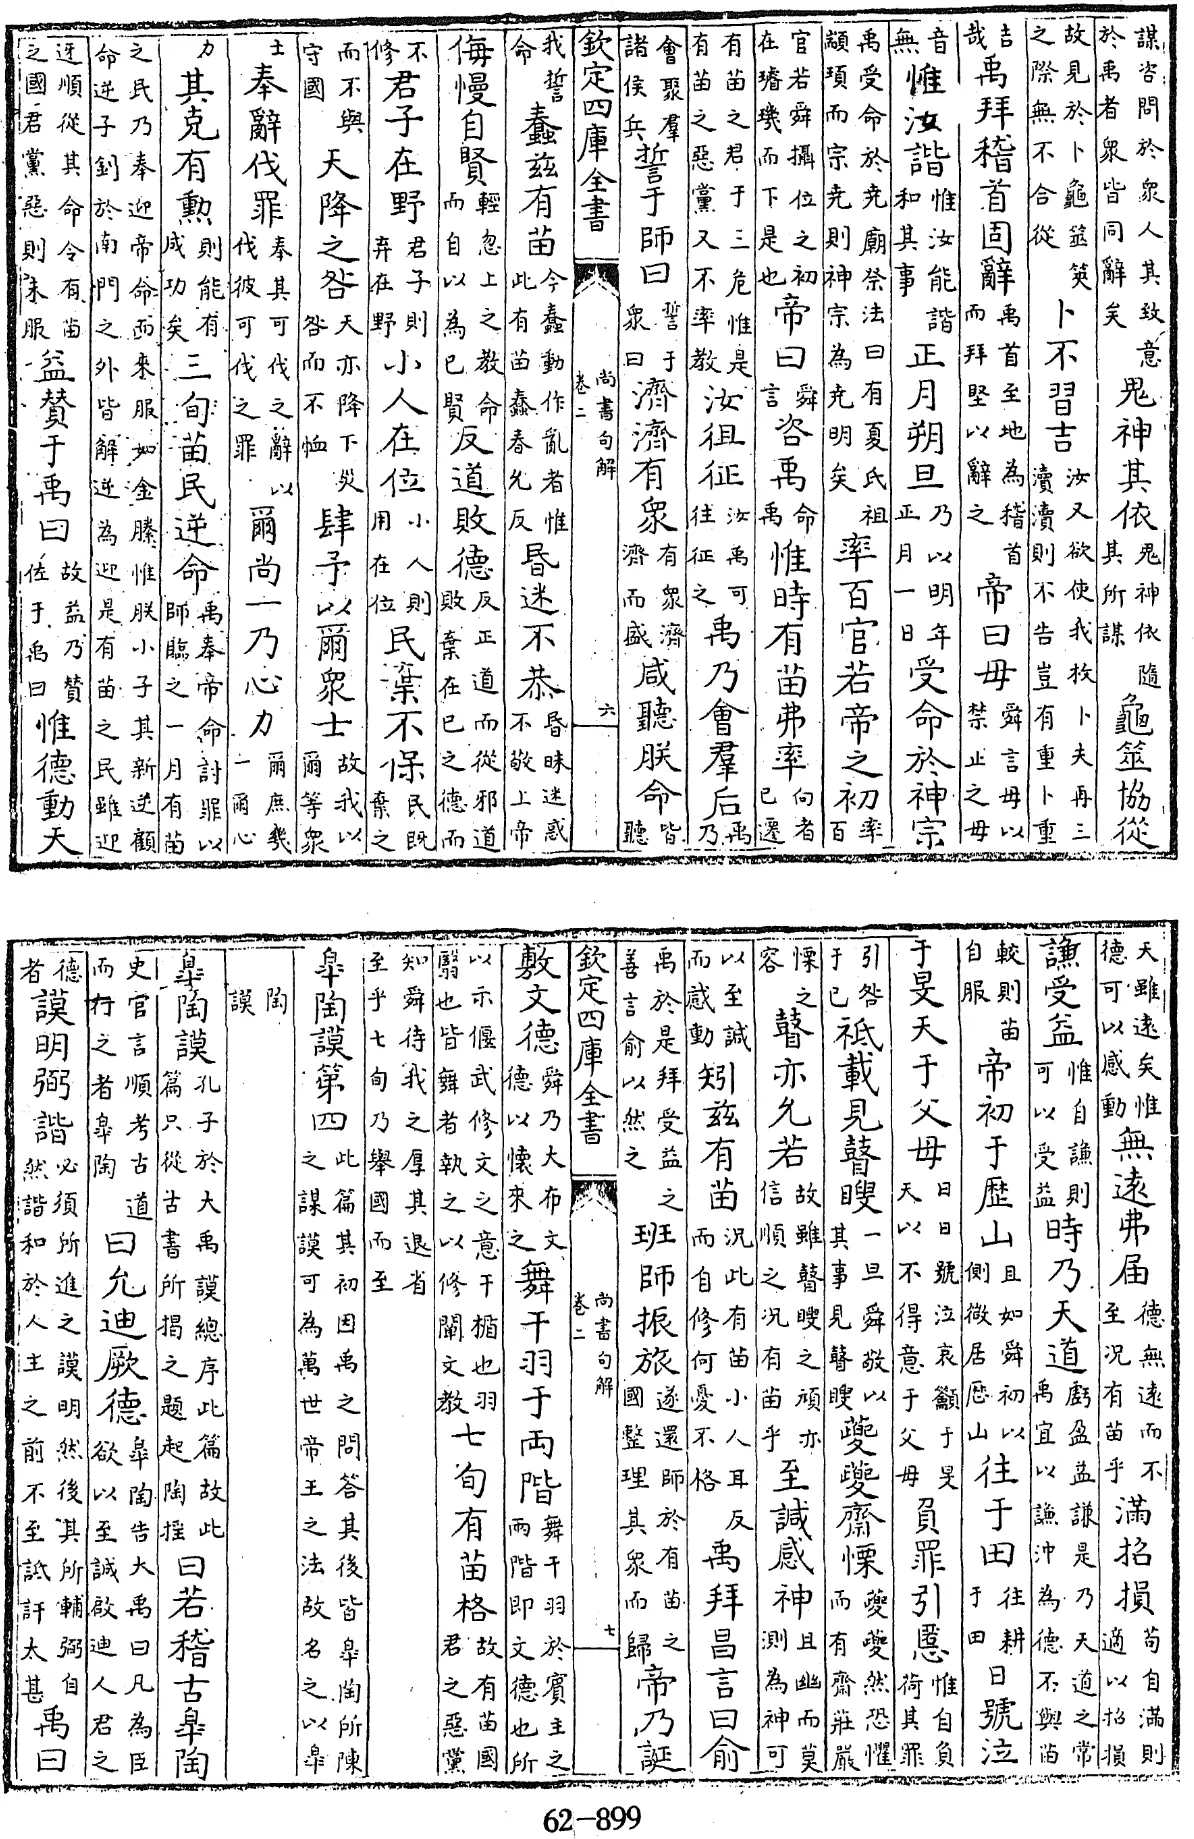 謀咨問於眾人其致意於禹者眾皆同辭矣鬼神其依鬼神依隨其所謀龜筮協從
故見於卜龜筮筴之際無不合從卜不習吉汝又欲使我枚卜夫再三瀆瀆則不告豈有重卜重
吉哉禹拜稽首固辭禹首至地為稽首而拜堅以辭之帝曰毋舜言毋以禁止之毋
音無惟汝諧惟汝能諧和其事正月朔旦乃以明年正月一日受命於神宗
禹受命於堯廟祭法曰有夏氏祖顓頊而宗堯則神宗為堯明矣率百官若帝之初率百
官若舜攝位之初在璿璣而下是也帝曰舜言咨禹命禹惟時有苗弗率向者已遷
有苗之君于三危惟是有苗之惡黨又不率教汝徂征汝禹可往征之禹乃會羣后禹乃
會聚羣諸侯兵誓于師曰誓于眾曰濟濟有眾有眾濟濟而盛咸聽朕命皆聽
欽定四庫全書 尚書句解 卷二 六
我誓命蠢茲有苗今蠢動作亂者惟此有苗蠢春允反昏迷不恭昏昧迷惑不敬上帝
侮慢自賢輕忽上之教命而自以為已賢反道敗德反正道而從邪道敗棄在已之德而
不修君子在野君子則弃在野小人在位小人則用在位民棄不保民既棄之
而不與守國天降之咎天亦降下災咎而不恤肆予以爾眾士故我以爾等眾
士奉辭伐罪奉其可伐之辭以伐彼可伐之罪爾尚一乃心力爾庶幾一爾心
力其克有勳則能有成功矣三旬苗民逆命禹奉帝命討罪以師臨之一月有苗
之民乃奉迎帝命而來服如金縢惟朕小子其新逆顧命逆子釗於南門之外皆解逆為迎是有苗之民雖迎
迓順從其命今有苗之國君黨惡則未服益贊于禹曰故益乃贊佐于禹曰惟德動天
天雖遠矣惟德可以感動無遠弗届德無遠而不至況有苗乎滿招損苟自滿則適以招損
謙受益惟自謙則可以受益時乃天道虧盈益謙是乃天道之常禹宜以謙沖為德不與苗
較則苗自服帝初于歷山且如舜初以側微居歷山往于田往耕于田日號泣
于旻天于父母日日號泣哀籲于旻天以不得意于父母負罪引慝惟自負荷其罪
引咎于已祗載見瞽瞍一旦舜敬以其事見瞽瞍夔夔齋慄夔夔然恐懼而有齋莊嚴
慄之容瞽亦允若故雖瞽瞍之頑亦信順之況有苗乎至諴感神且幽而莫測為神可
以至諴而感動矧茲有苗況此有苗小人耳反而自修何憂不格禹拜昌言曰俞
禹於是拜受益之善言俞以然之班師振旅遂還師於有苗之國整理其眾而歸帝乃誕
欽定四庫全書 尚書句解 卷二 七
敷文德舜乃大布文德以懷來之舞干羽于兩階舞干羽於賓主之兩階即文德也所
以示偃武修文之意干楯也羽翳也皆舞者執之以修闡文教七旬有苗格故有苗國君之惡黨
知舜待我之厚其退省至乎七旬乃舉國而至
皋陶謨第四此篇其初因禹之問答其後皆皋陶所陳之謀謨可為萬世帝王之法故名之以皋
陶謨
皋陶謨孔子於大禹謨總序此篇故此篇只從古書所揭之題起陶揺曰若稽古皋陶
史官言順考古道而行之者皋陶曰允迪厥德皋陶告大禹曰凡為臣欲以至誠啟迪人君之
德者謨明弼諧必須所進之謨明然後其所輔弼自然諧和於人主之前不至詆訐太甚禹曰
62-899